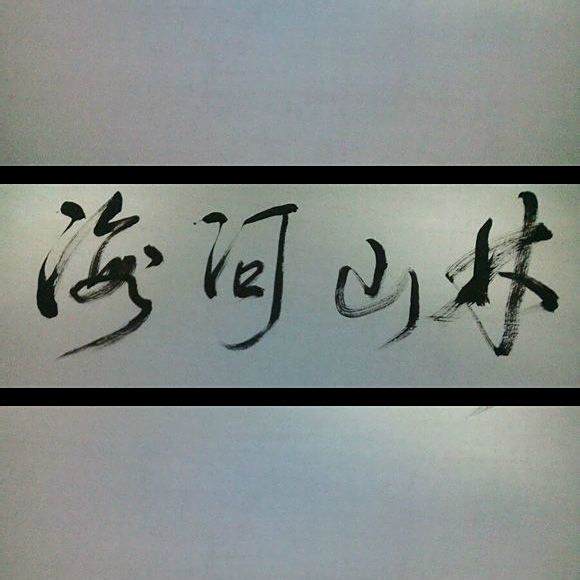 海河山林